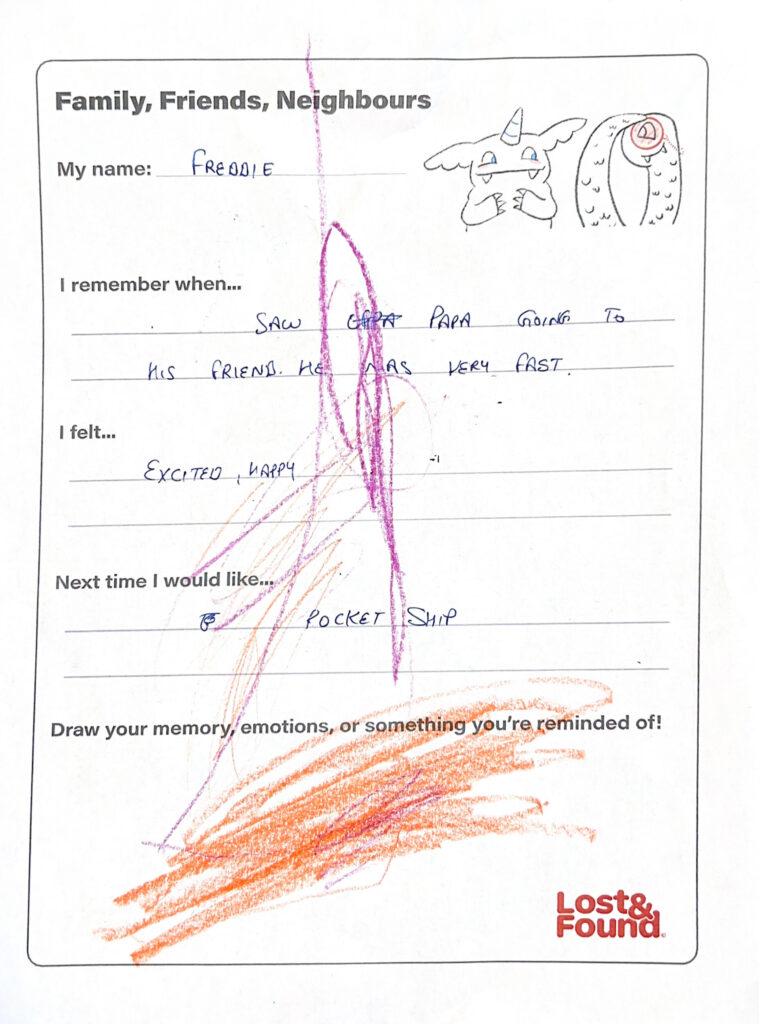 Family, Friends, Neighbours
My name: FREDDIE
I remember when...
SAW PAPA GOING TO
HIS FRIEND. HE WAS VERY FAST.
I felt...
EXCITED, HAPPY
Next time I would like...
POCKET SHIP
Draw your memory, emotions, or something you're reminded of!
Lost&
Found